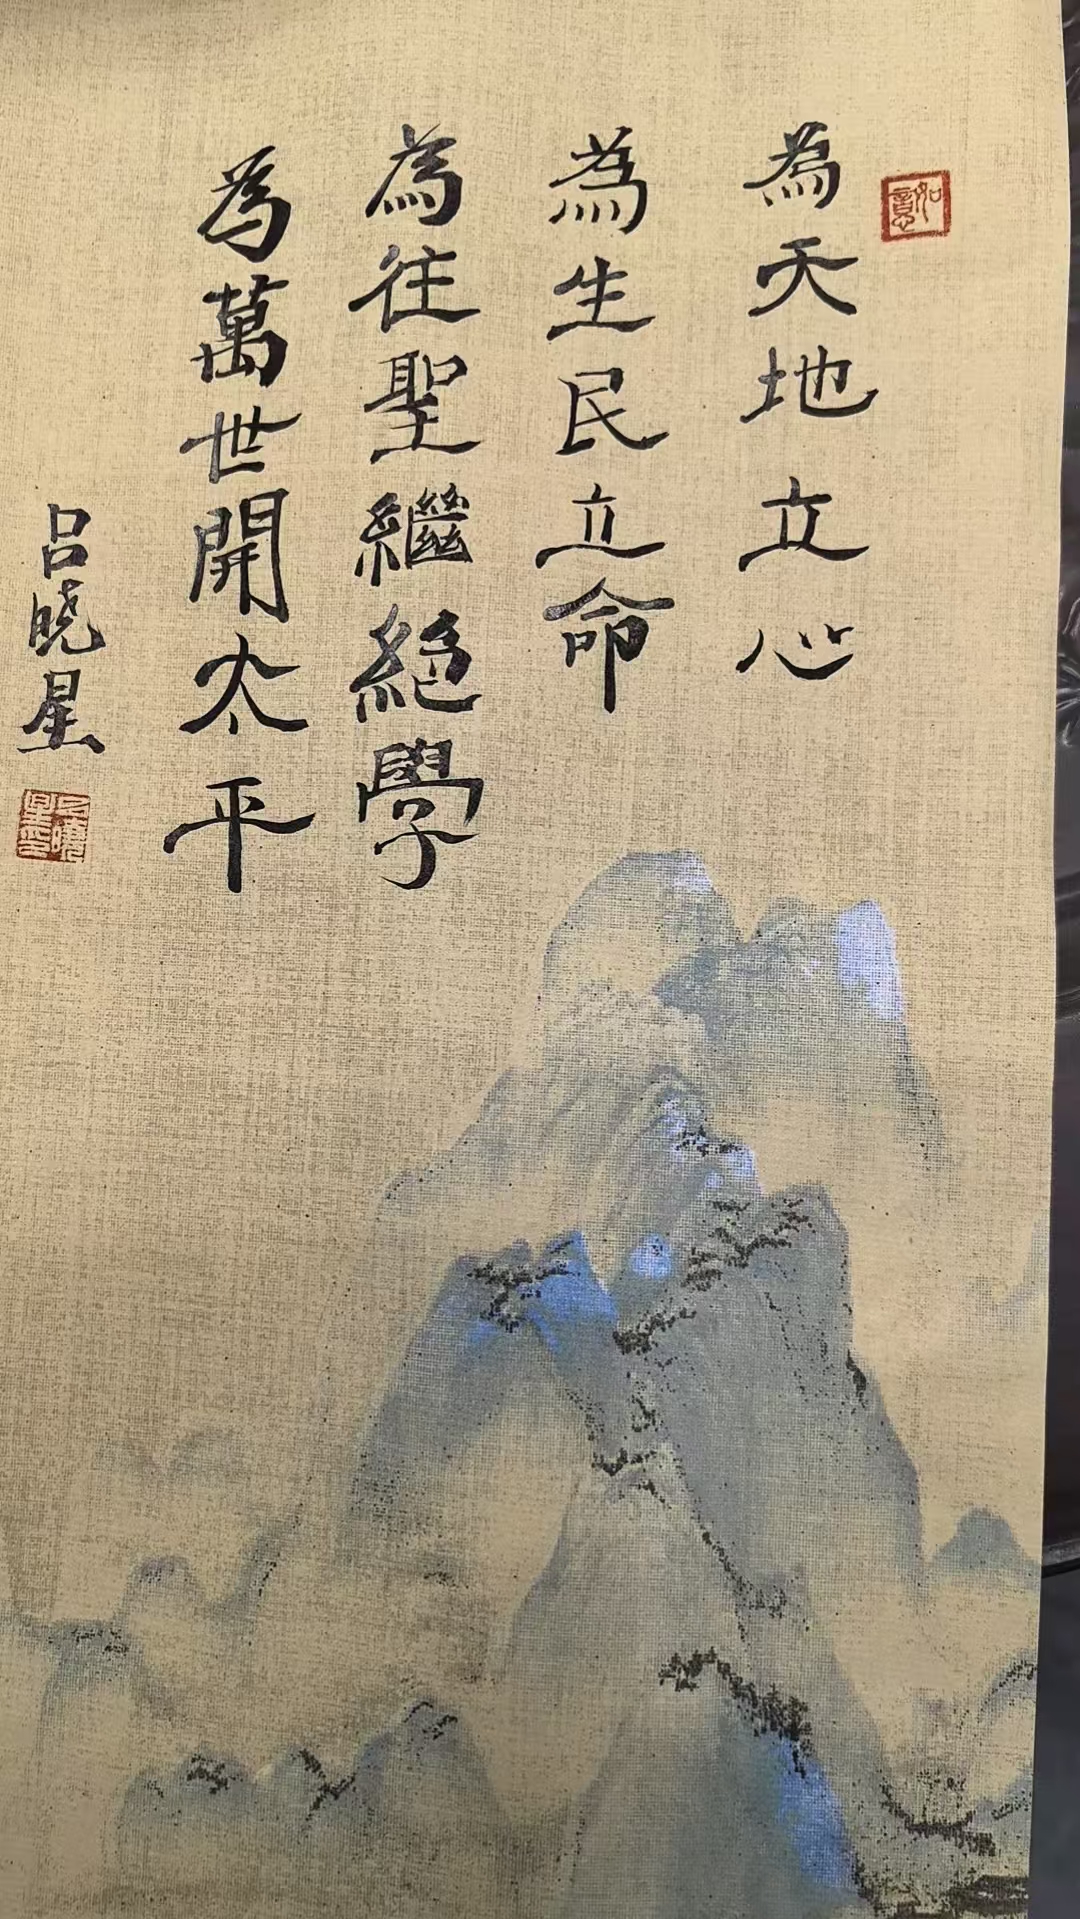 如意
為天地立心
為生民立命
為往聖繼絕學
為萬世開太平
吕晓星
吕曉星印